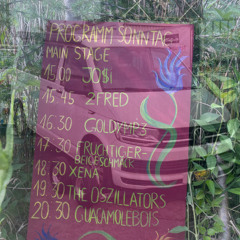 PROGRAMM SONNTAG
MAIN STAGE
15.00 JO$!
15.45 2FRED
16 30 GOLDYMP3
17 30 FRUCHTIGER-
BEIGESCHMACK
18 30 XENA
19 30 THE OSZILLATORS
20 30 GUACAMOLEBOIS